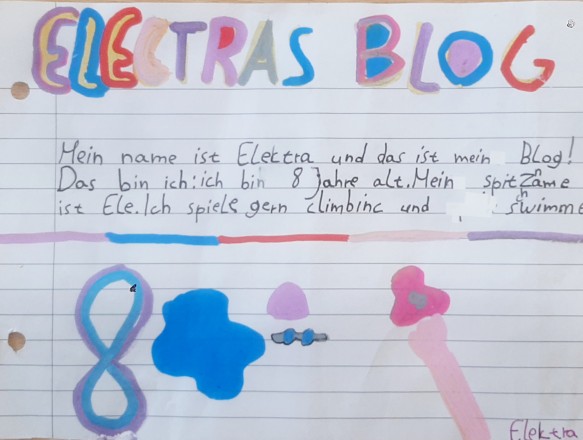 ELECTRAS BLOG
Mein name ist Elektra und das ist mein Blog!
Das bin ich: ich bin 8 Jahre alt. Mein spitzname
ist Ele. Ich spiele gern climbinc und schwimme
8
Elektra